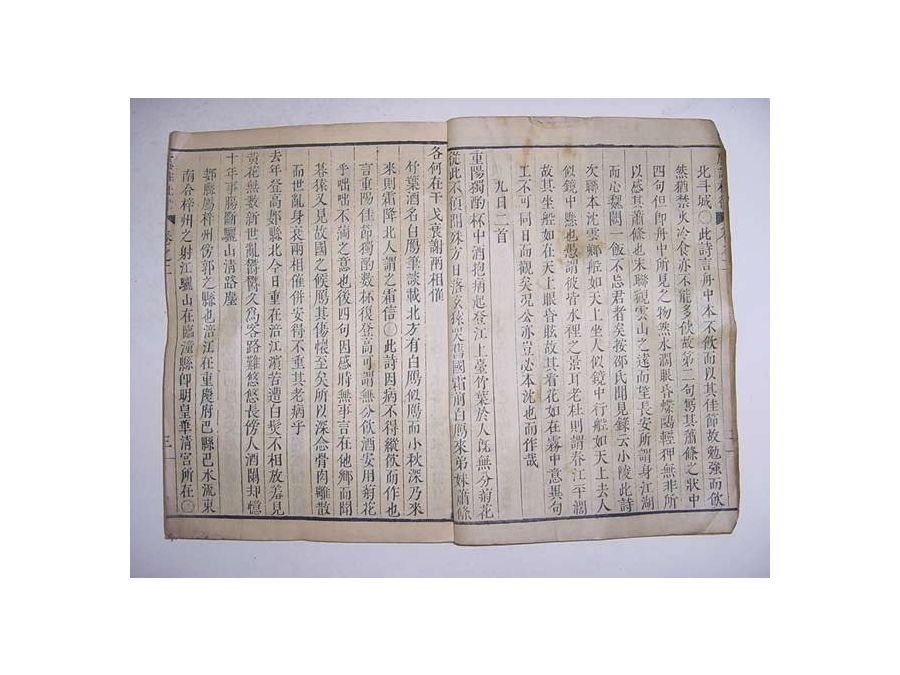 北斗城○此詩言舟中本不飲而以其佳節故勉強而飲
然猶禁火冷食亦不能多飲故第二句寫其蕭條之狀中
四句但即舟中所見之物然水濶眼昏蝶鷗輕狎無非所
以感其蕭條也末聯觀雲山之遠而望長安所謂身江湖
而心魏闕一飯不忘君者矣按邵氏聞見錄云小陵此詩
次聯本沈雲卿舩如天上坐人似鏡中行舩如天上去人
似鏡中懸也愚謂彼皆水裡之景耳老杜則謂春江平濶
故其坐舩如在天上眼昏眩故其看花如在霧中意異句
工不可同日而觀矣况公亦豈必本沈也而作哉
九日二首
重陽獨酌杯中酒抱病起登江上臺竹葉於人既無分菊花
從此不須開殊方日落玄猿哭舊國霜前白鴈來弟妹蕭條
各何在干戈衰謝兩相催
竹葉酒名白鴈筆談載北方有白鴈似鴈而小秋深乃來
來則霜降北人謂之霜信○此詩因病不得縱飲而作也
言重陽佳節獨酌數杯復登高可謂無分飲酒安用菊花
乎咄咄不滿之意也後四句因感時無事言在他鄉而聞
暮猿又見故國之候鴈其傷懷至矣所以深念骨肉離散
而世亂身衰兩相催併安得不重其老病乎
去年登高郪縣北今日重在涪江濱苦遭白髮不相放羞見
黃花無數新世亂鬱鬱久爲客路難悠悠長傍人酒闌却憶
十年事腸斷驪山清路塵
郪縣屬梓州傍郭之縣也涪江在重慶府巴縣巴水流東
南合梓州之射江驪山在臨潼縣即明皇華清宮所在○
卷之二
三